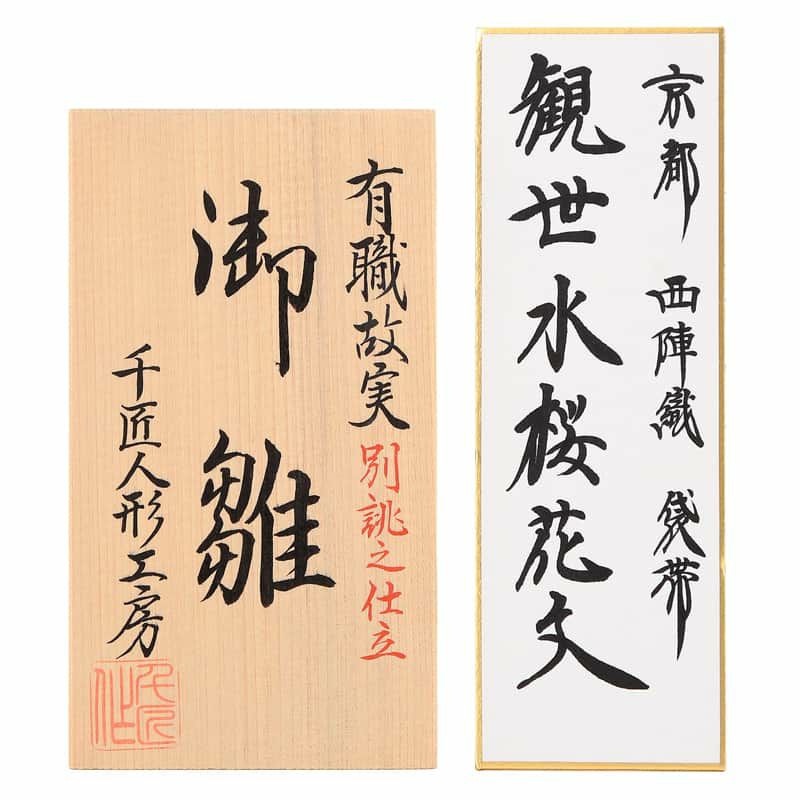 有職故実 別誂之仕立
御雛
千匠人形工房
千匠作
京都 西陣織 袋帯
観世水桜花文